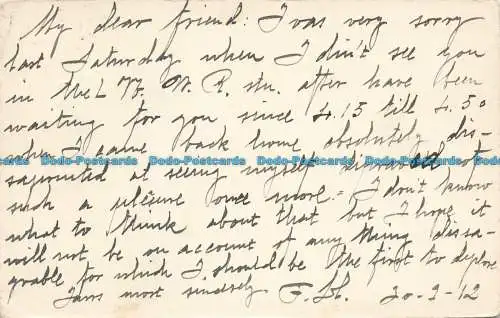 My dear friend: I was very sorry
last Saturday when I didn't see you
in the L & N. W. R. stn. after have been
waiting for you since 4.15 till 4.50
when I came back home absolutely dis-
Dodo-Postcards Dodo-Postcards Dodo-Postcards Dodo-Postcards
sapointed at seeing myself of
such a pleisure once more.- I don't know
what to think about that but I hope it
will not be on account of any thing dissa-
grable for which I should be the first to deplore
I am most sincilely F. Ll. 20-2-12